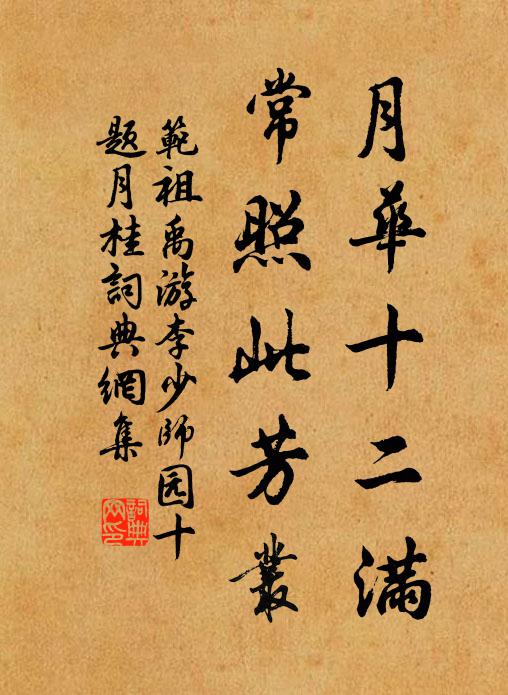 月華十二滿
常照此芳叢
範祖禹游李少師园十
題月桂詞典網集
詞典
网印